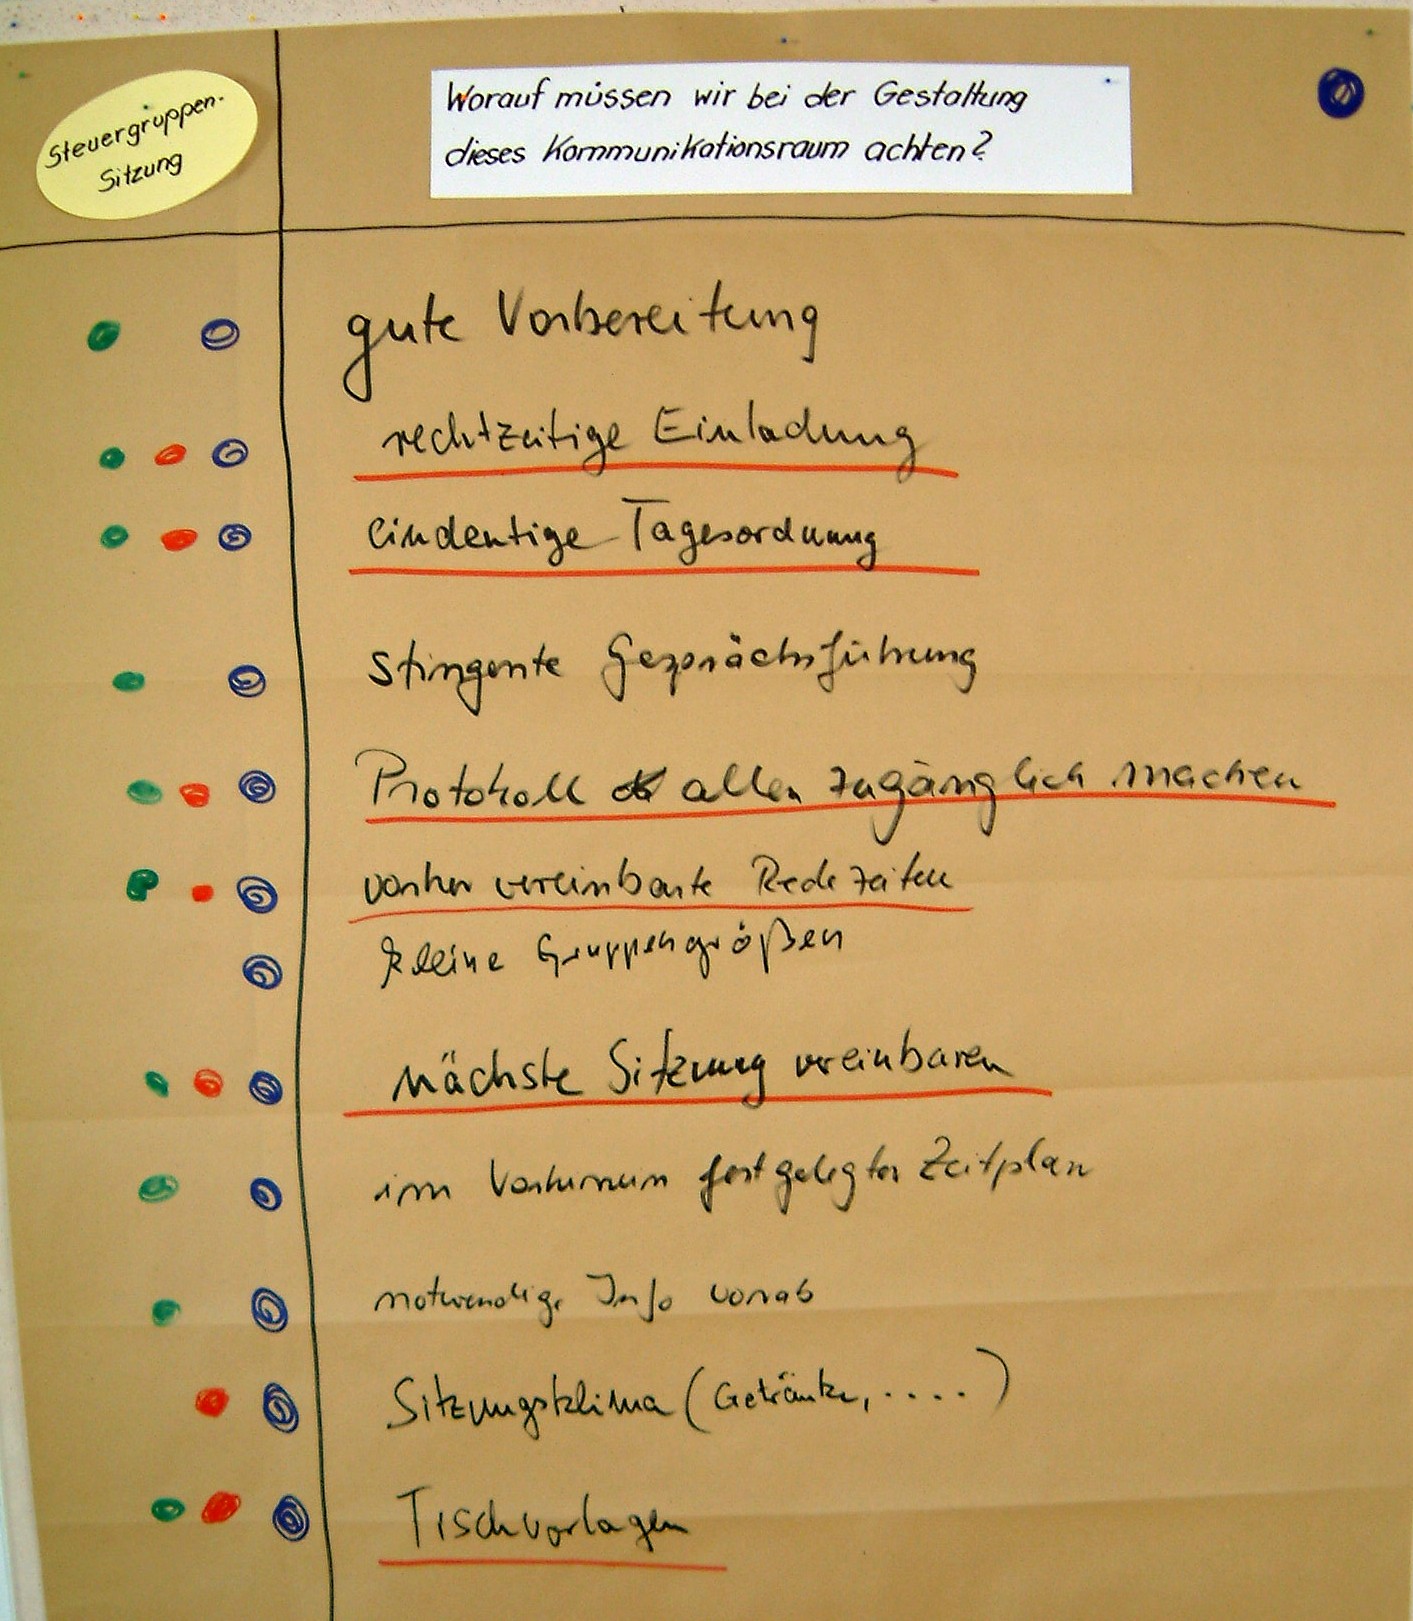 Steuergruppen-
Sitzung
Worauf müssen wir bei der Gestaltung
dieses Kommunikationsraum achten?
gute Vorbereitung
rechtzeitige Einladung
eindeutige Tagesordnung
stingente Gesprächsführung
Protokoll allen zugänglich machen
vorher vereinbarte Redezeiten
kleine Gruppengrößen
nächste Sitzung vereinbaren
im Vorhinein festgelegter Zeitplan
notwendige Info vorab
Sitzungsklima (Getränke, ....)
Tischvorlagen